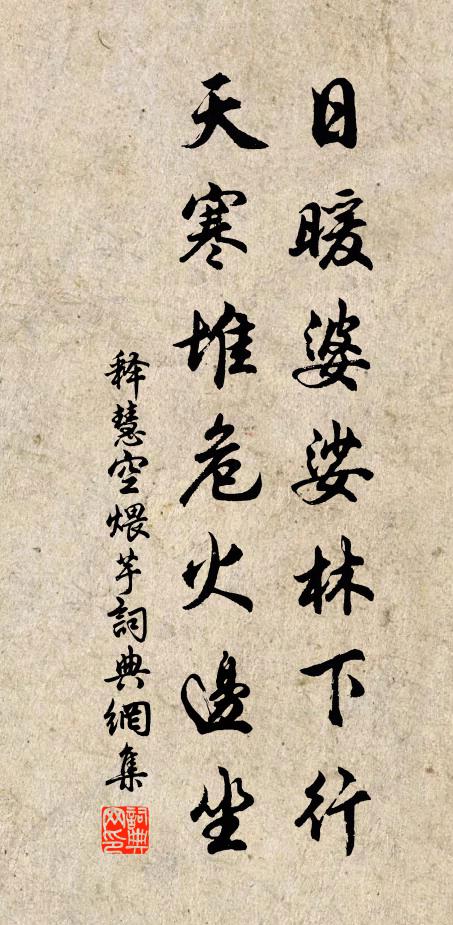 日暖婆娑林下行
天寒堆危火邊坐
释慧空煨芋詞典網集
詞典网印